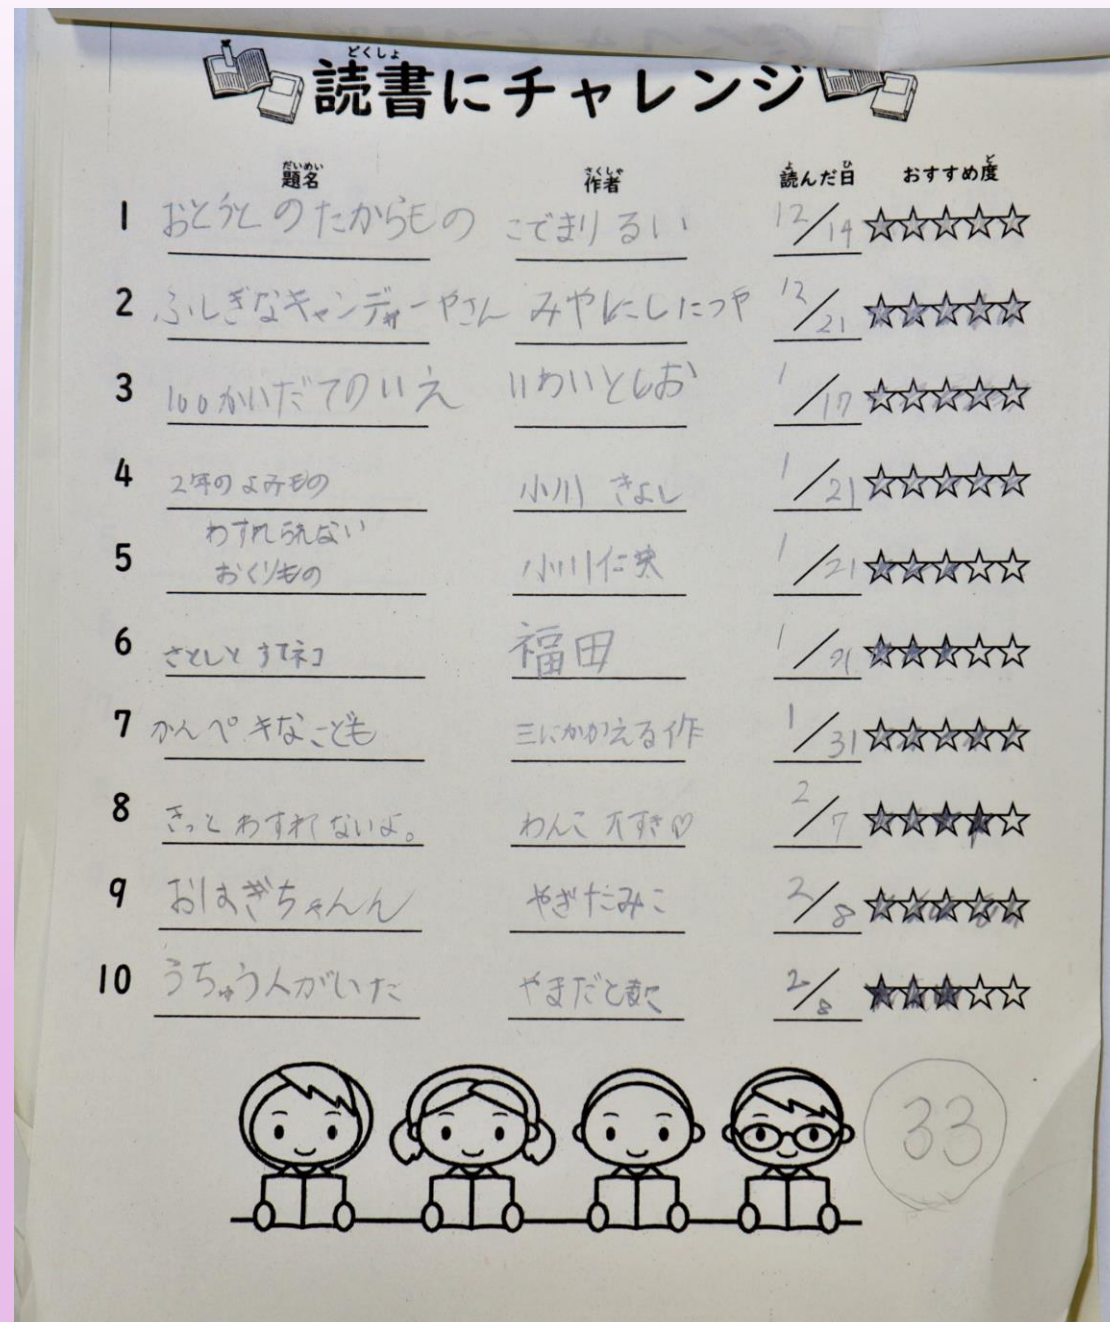 どくしょ
読書にチャレンジ
だいめい さくしゃ よ ひ ど
題名 作者 読んだ日 おすすめ度
1 おとうとのたからもの こでまりるい 12/14 ☆☆☆☆☆
2 ふしぎなキャンディーやさん みやにしたつや 12/21 ☆☆☆☆☆
3 100かいだてのいえ いわいとしお 1/17 ☆☆☆☆☆
4 2年のよみもの 小川 きよし 1/21 ☆☆☆☆☆
わすれられない
5 おくりもの 小川仁 1/21 ☆☆☆☆☆
6 さとしとすてネコ 福田 1/21 ☆☆☆☆☆
7 かんペキなこども 三にかかえる作 1/31 ☆☆☆☆☆
8 きっとわすれないよ。 わんこ大すき♡ 2/7 ☆☆☆☆☆
9 おはぎちゃんん やぎたみこ 2/8 ☆☆☆☆☆
10 うちゅう人がいた やまだと 2/8 ☆☆☆☆☆
33